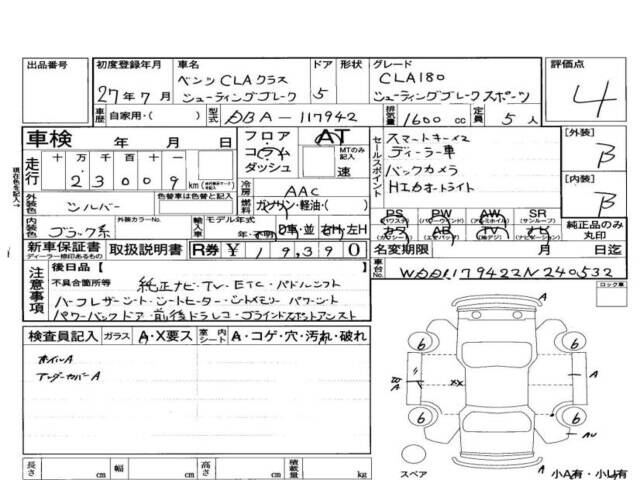 出品番号 初度登録年月 車名 ドア 形状 グレード 評価点
27年7月 ベンツCLAクラス シューティングブレーク 5 CLA180 シューティングブレーク スポーツ 4
車歴 自家用・( ) 型式 DBA-117942 排気量 1600 cc 定員 5 人
車検 年 月 日 フロア コラム ダッシュ AT MTのみ記入 速
セールスポイント スマートキー×2
ディーラー車
バックカメラ
HIDオートライト
[外装] B
[内装] B
走行 十 万 千 百 十 一
23009 km
冷房 AAC
燃料 ガソリン・軽油・( )
外装色 シルバー 色替車は色替と記入
内装色 ブラック系 外装カラーNo. 輸入車 モデル年式 年・不明 D車・並 右H・左H
PS PW AW SR
(パワステ) (パワーウィンド) (アルミホイル) (サンルーフ)
カワ AB TV ナビ
(エアバッグ) (ナビゲーション)
純正品のみ丸印
新車保証書 取扱説明書 R券 ¥19,390 名変期限 月 日迄
ディーラー捺印あるもの
車台No. WDD1179422N240532
現在色を記入
注意事項 後日品【 】
不具合箇所等 純正ナビ・TV・ETC・パドルシフト
ハーフレザーシート・シートヒーター・シートメモリー パワーシート
パワーバックドア・前後ドラレコ・ブラインドスポットアシスト
ロック車
検査員記入 ガラス A・X要ス 室内シート A・コゲ・穴・汚れ・破れ
ホイルA
アンダーカバーA
A
6 6
A XX A
6 6
AU
スペア A
小A有・小U有
長さ cm 幅 cm 高さ cm 積載量 kg